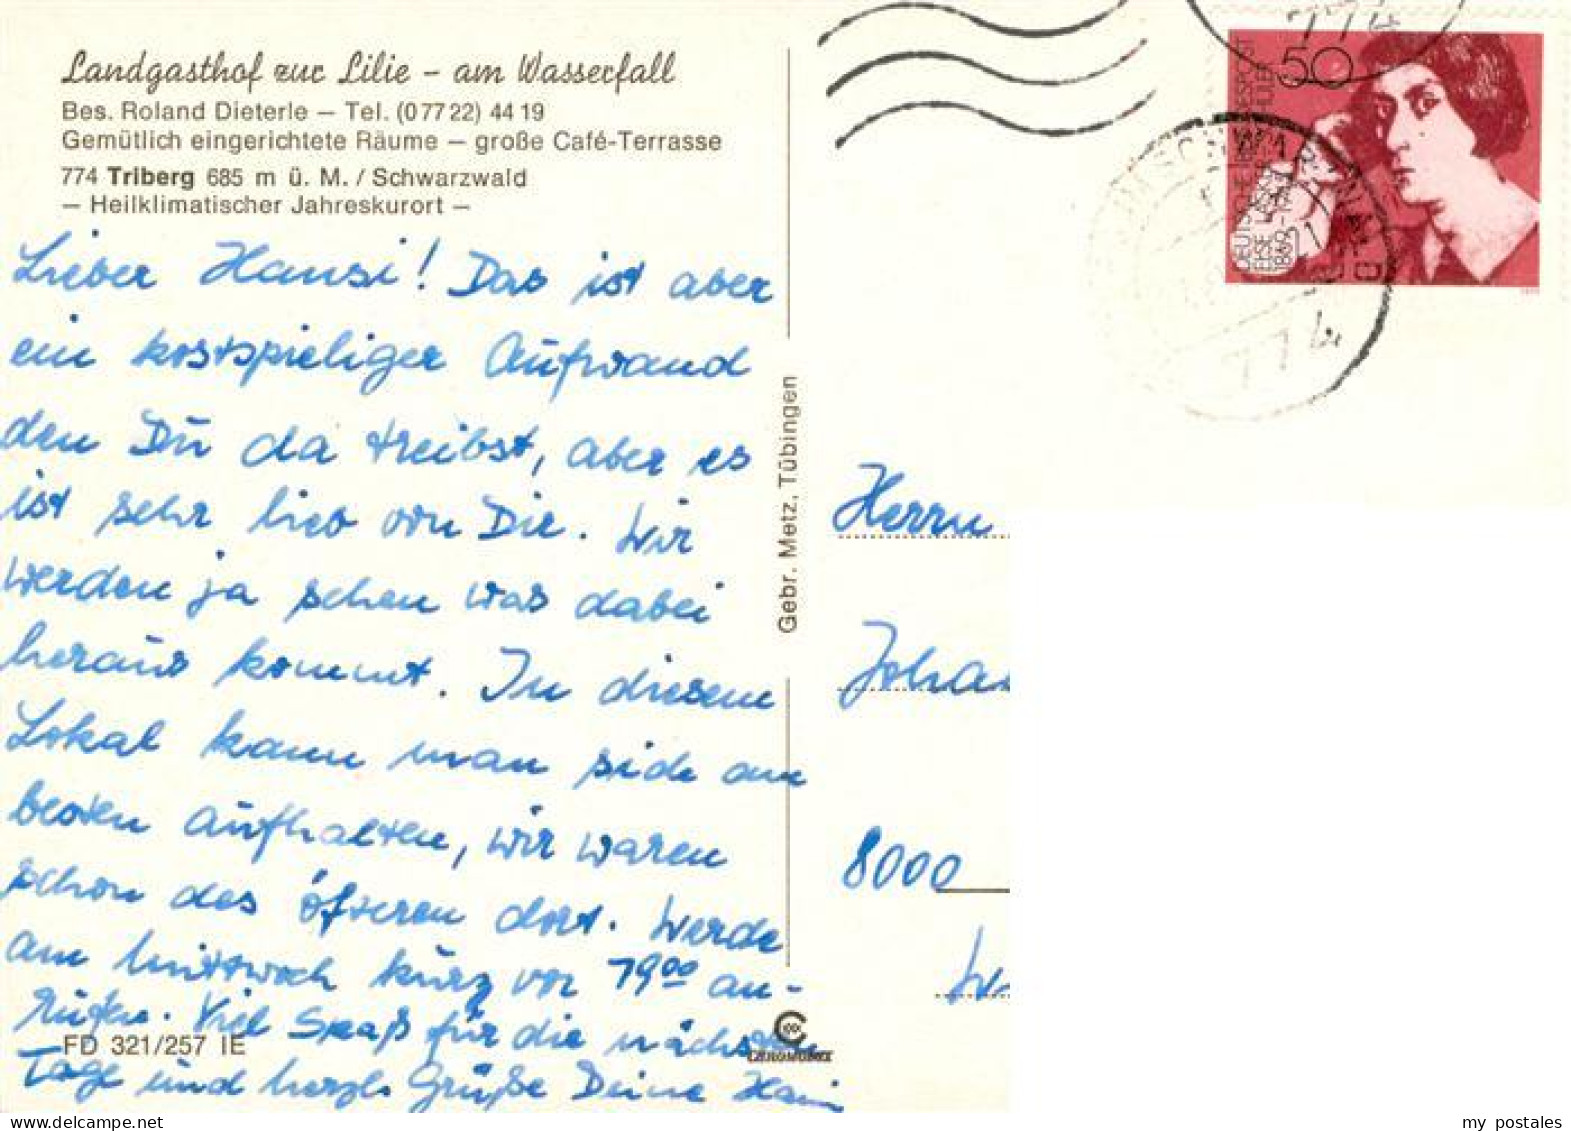 Landgasthof zur Lilie – am Wasserfall
Bes. Roland Dieterle – Tel. (0 77 22) 44 19
Gemütlich eingerichtete Räume – große Café-Terrasse
774 Triberg 685 m ü. M. / Schwarzwald
– Heilklimatischer Jahreskurort –
Lieber Hansi! Das ist aber
ein kostspieliger Aufwand
den Du da treibst, aber es
ist sehr lieb von Dir. Wir
werden ja sehen was dabei
heraus kommt. In diesem
Lokal kann man sich am
besten aufhalten, wir waren
schon des öfteren dort. Werde
am Mittwoch kurz vor 19 00 an-
rufen. Viel Spaß für die nächsten
Tage und herzl. Grüße Deine
FD 321/257 IE
CHROMOLUX
Gebr. Metz, Tübingen
50
DEUTSCHE BUNDESPOST
774
774
Herrn
Joha
8000
my postales